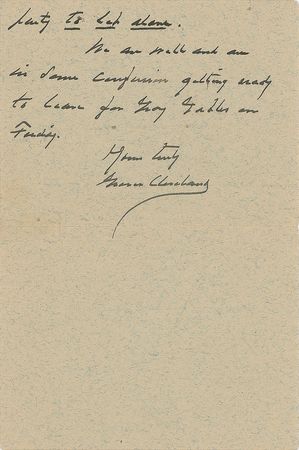 party to let alone.
We are well and are
in some confusion getting ready
to leave for Gray Gables on
Friday.
Yours truly
Grover Cleveland